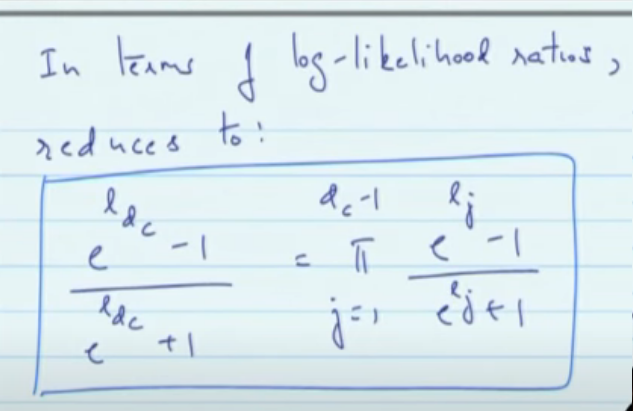 In terms of log-likelihood ratios,
reduces to:
e^{l_{d_c}} - 1 / e^{l_{d_c}} + 1 = π_{j=1}^{d_c-1} e^{l_j} - 1 / e^{l_j} + 1